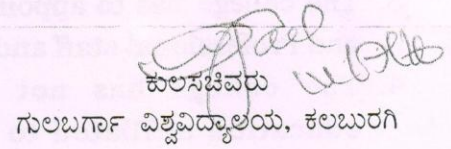 ಕುಲಸಚಿವರು
ಗುಲಬರ್ಗಾ ವಿಶ್ವವಿದ್ಯಾಲಯ, ಕಲಬುರಗಿ